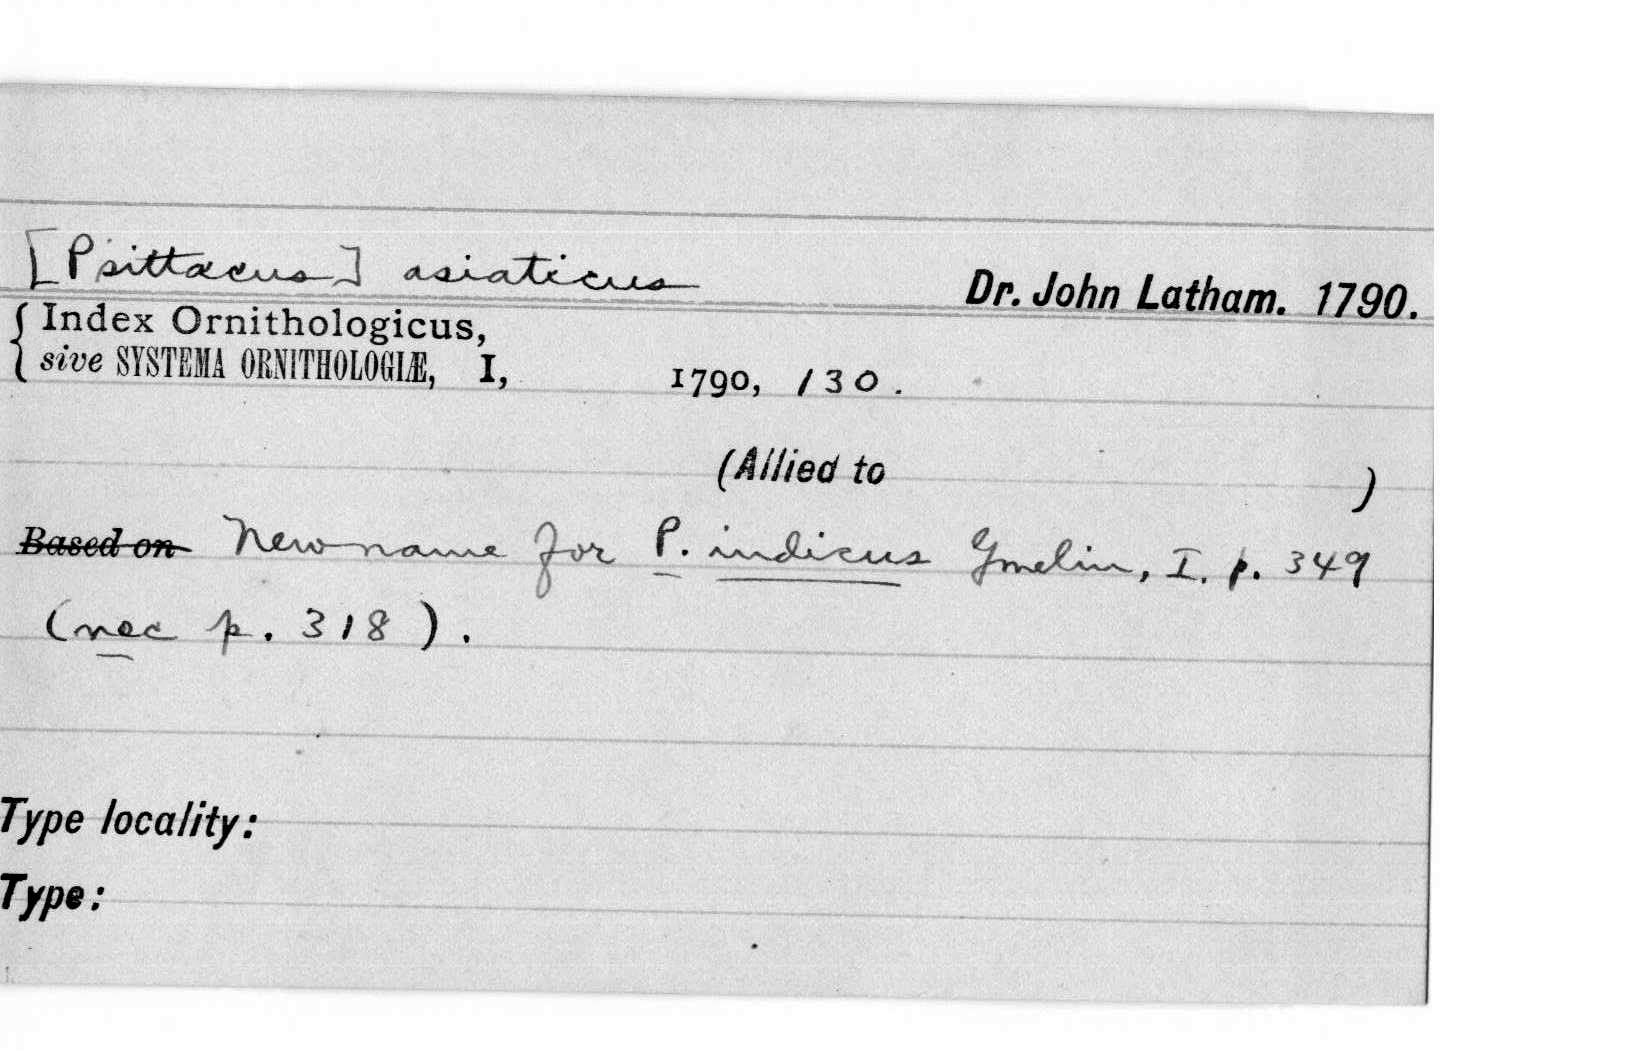 [Psittacus] asiaticus Dr. John Latham. 1790.
{ Index Ornithologicus,
sive SYSTEMA ORNITHOLOGIÆ, I, 1790, 130.
(Allied to )
Based on New name for P. indicus Gmelin, I. p. 349
(nec p. 318).
Type locality:
Type: